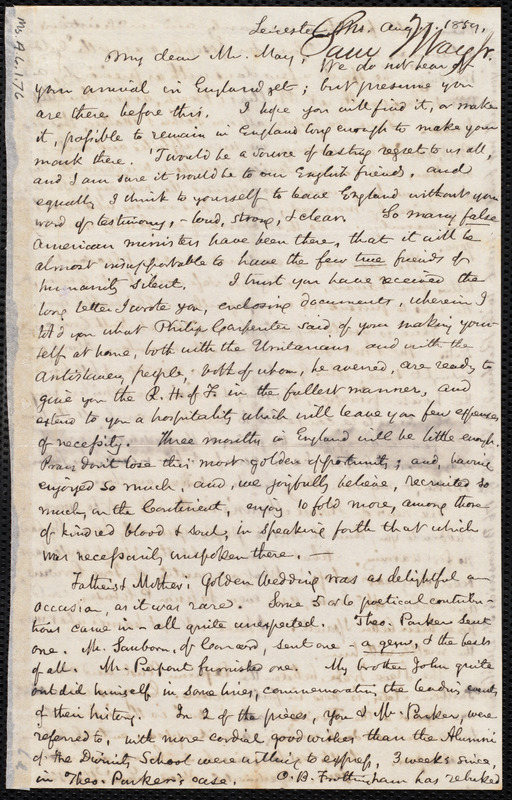 Ms. A. 6. 1. 76
Leicester, Ms. Aug 1859.
Saml May Jr.
My dear Mr. May,
We do not hear of
your arrival in England yet; but presume you
are there before this. I hope you will find it, or make
it, possible to remain in England long enough to make your
mark there. 'Twould be a source of lasting regret to us all,
and I am sure it would be to our English friends, and
equally I think to yourself to leave England without your
word of testimony, - loud, strong, & clear. So many false
American ministers have been there, that it will be
almost insupportable to have the few true friends of
humanity silent. I trust you have received the
long letter I wrote you, enclosing documents, wherein I
told you what Philip Carpenter said of your making your
self at home, both with the Unitarians and with the
Antislavery people; both of whom, he averred, are ready to
give you the R. H. of F. in the fullest manner, and
extend to you a hospitality which will leave you few expenses
of necessity. Three months in England will be little enough.
Pray don't lose this most golden opportunity; and, having
enjoyed so much and, we joyfully believe, recruited so
much, on the Continent, enjoy 10 fold more, among those
of kindred blood & soul, in speaking forth that which
was necessarily unspoken there. —
Father & Mother's Golden Wedding was as delightful an
occasion, as it was rare. Some 5 or 6 poetical contribu-
tions came in - all quite unexpected. Theo. Parker sent
one. Mr. Sanborn, of Concord, sent one - a gem, & the best
of all. Mr. Pierpont furnished one. My brother John quite
outdid himself in some lines, commemorating the leading events
of their history. In 2 of the pieces, you & Mr. Parker, were
referred to, with more cordial good wishes than the Alumni
of the Divinity School were willing to express, 3 weeks since,
in Theo. Parker's case. O. B. Frothingham has rebuked